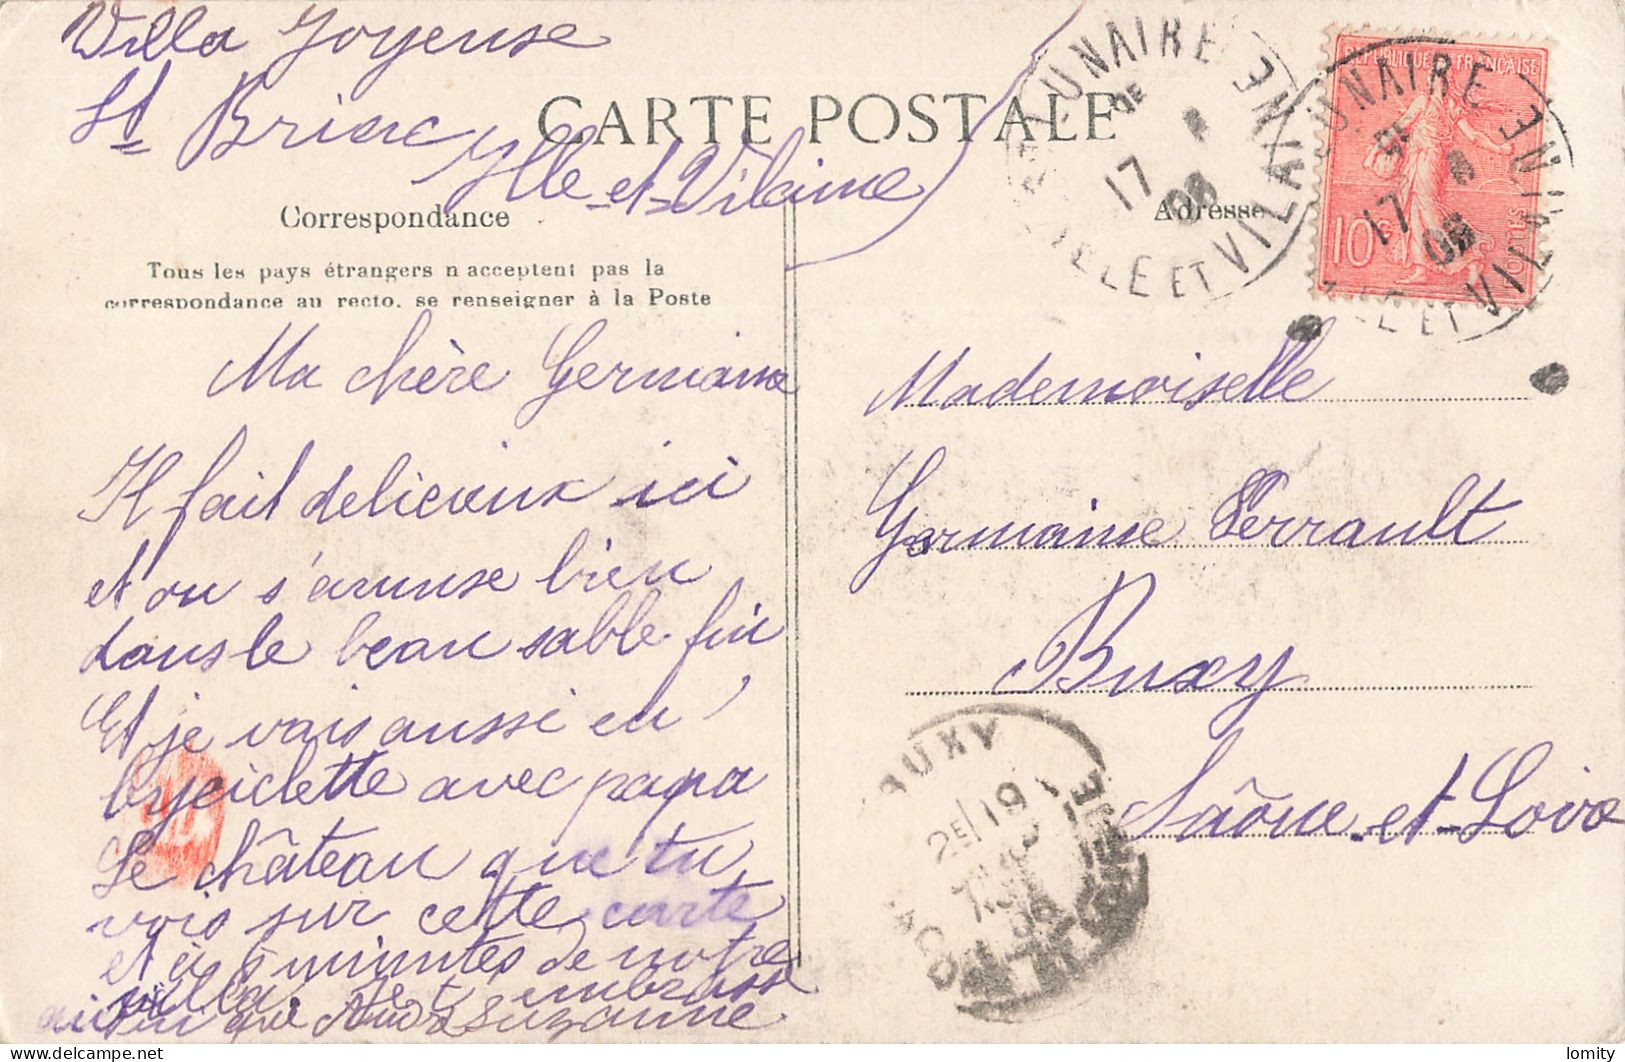 Villa Joyeuse
St Briac
Ille-et-Vilaine
CARTE POSTALE
Correspondance
Tous les pays étrangers n'acceptent pas la
correspondance au recto, se renseigner à la Poste
Ma chère Germaine
Il fait delicieux ici
et on s'amuse bien
dans le beau sable fin
Et je vais aussi en
byciclette avec papa
Le château que tu
vois sur cette carte
et à 5 minutes de notre
villa. Je t'embrasse
ainsi que Suzanne
Adresse
Mademoiselle
Germaine Perrault
Buxy
Saône-et-Loire
REPUBLIQUE FRANÇAISE
10c
POSTES
LUNAIRE
17
08
ILLE ET VILAINE
LUNAIRE
17
08
ET VILAINE
BUXY
2E/19
08
lomity
delcampe.net